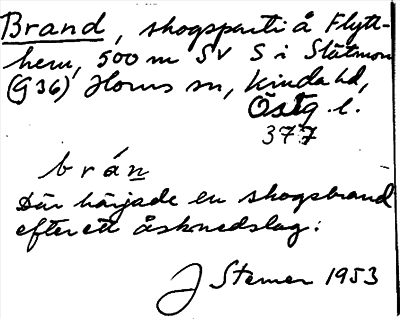 Brand, skogsparti å Flytt-
hem, 500 m SV S i Slätmon
(G36) Horns sn, Kinda hd,
Östg. l.
377
brán
Där härjade en skogsbrand
efter ett åsknedslag.
J Stemer 1953